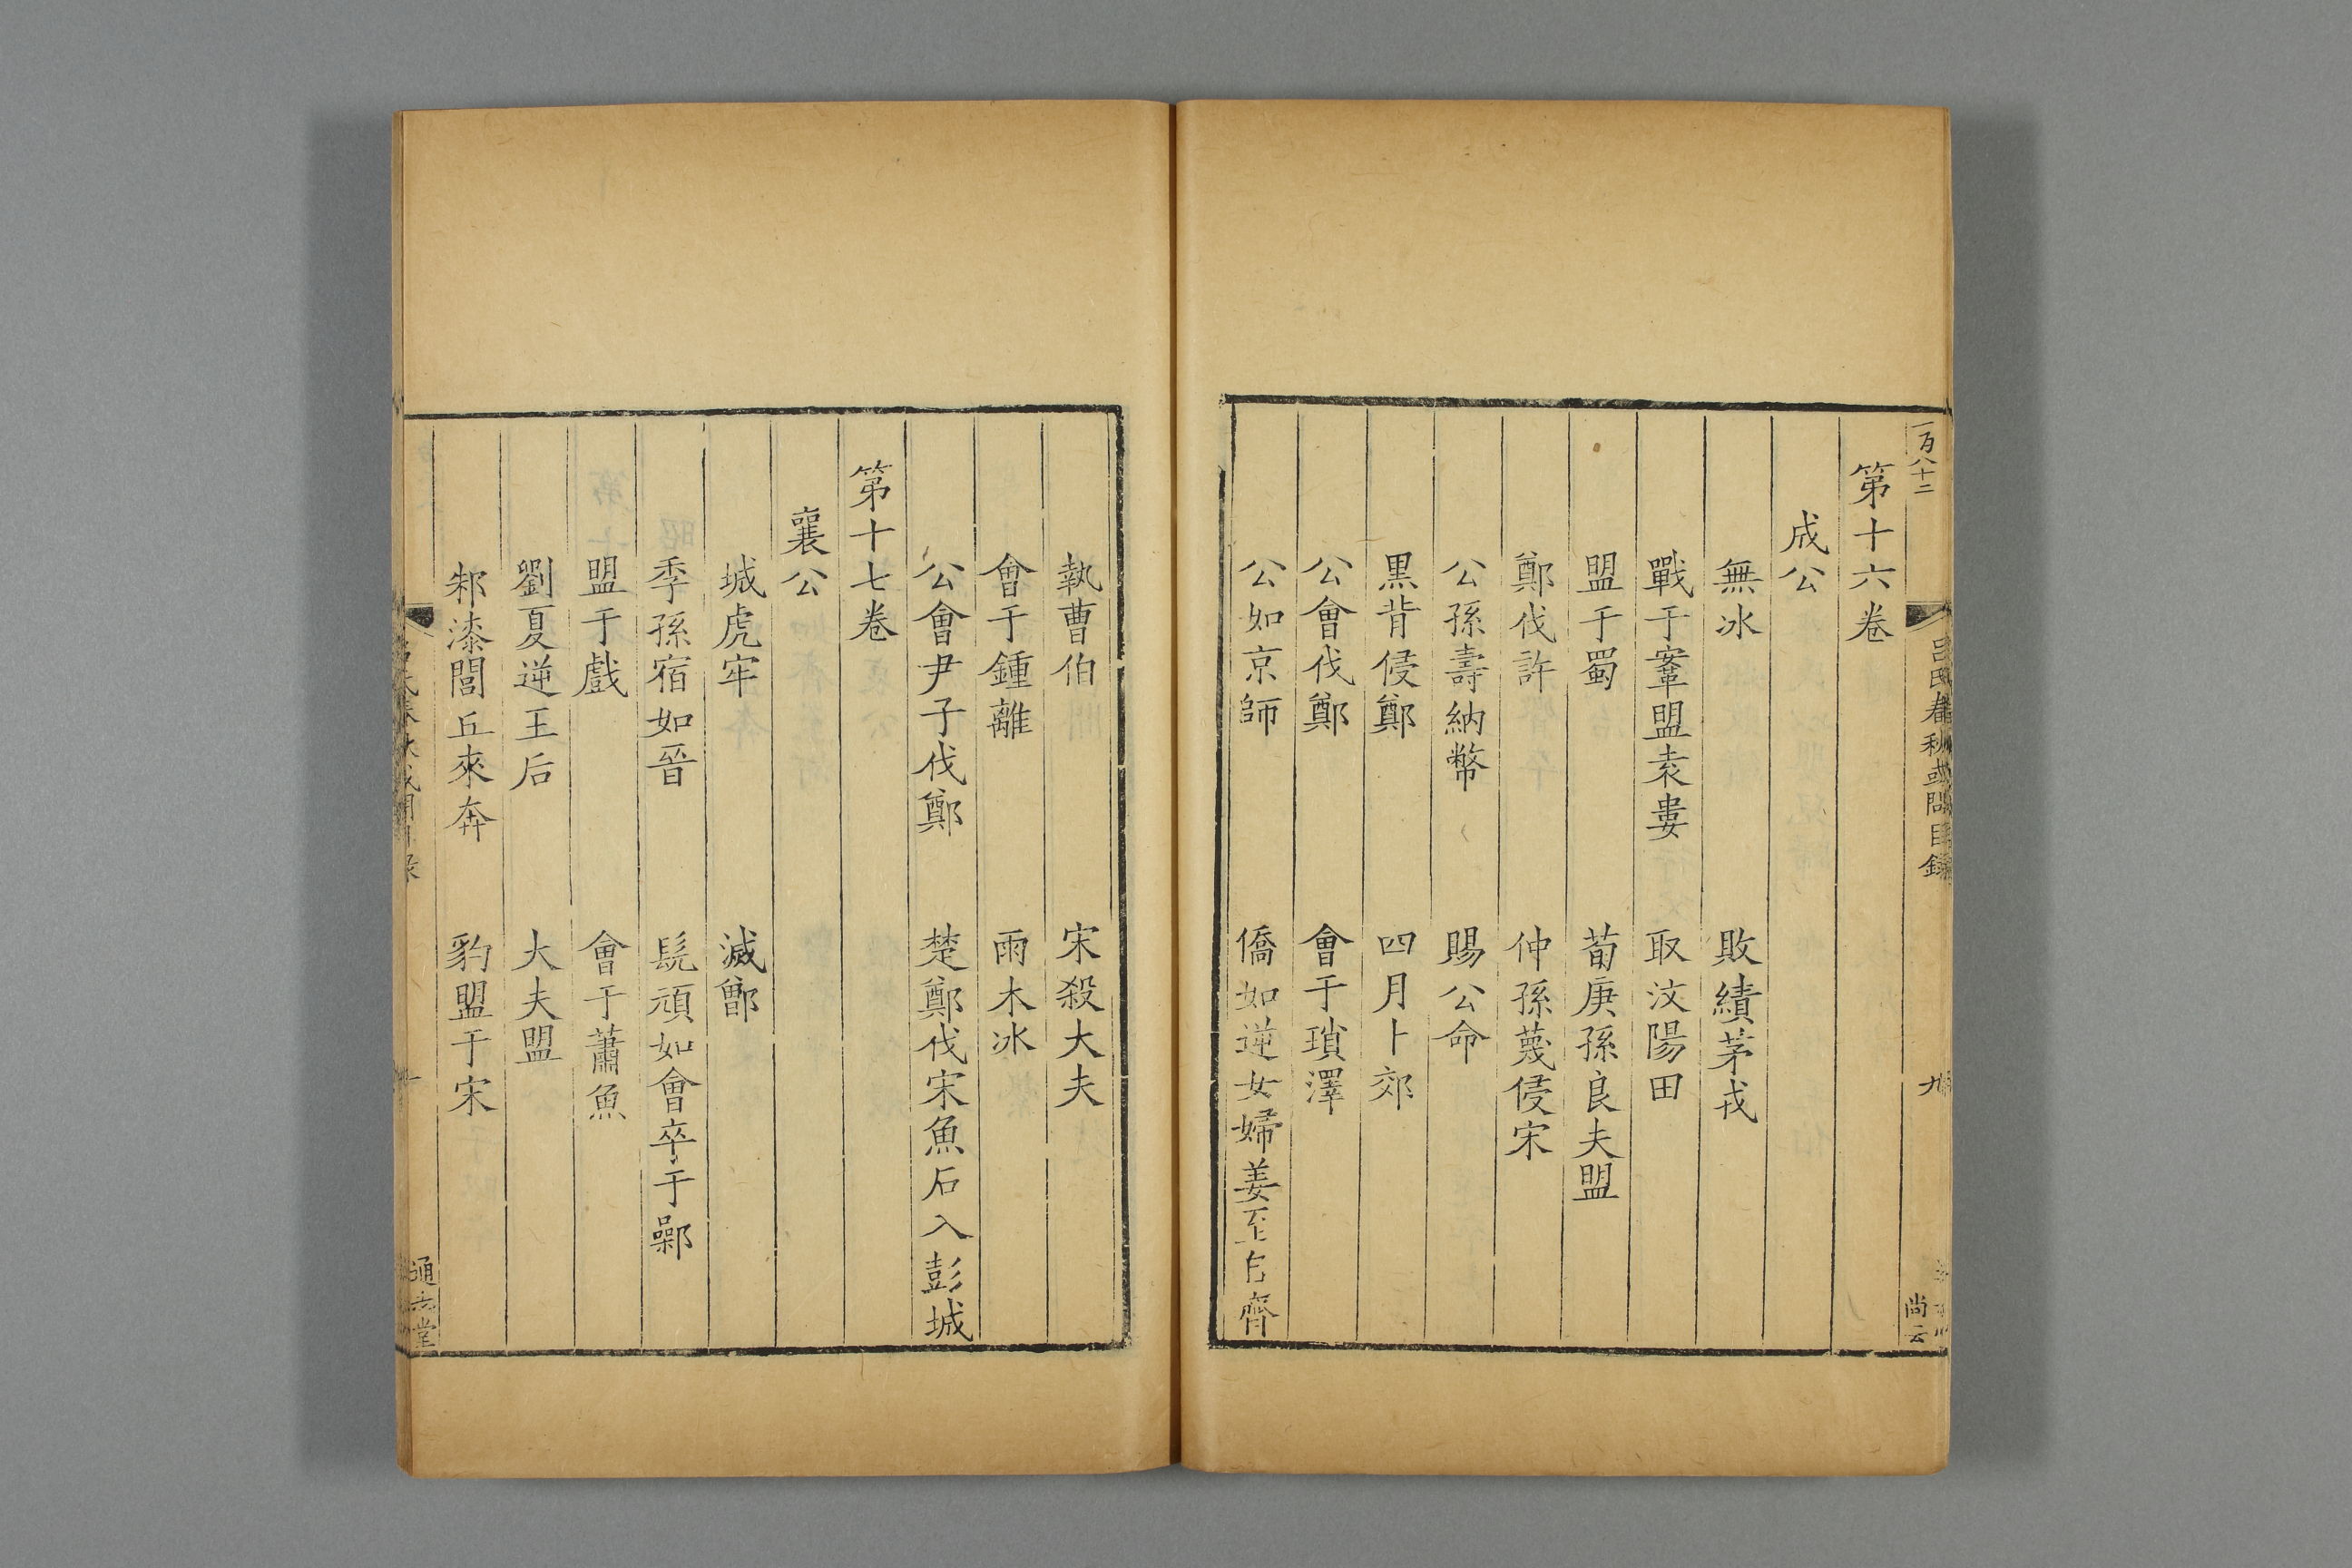 一百八十二
吕氏春秋或問目錄
九
尚云
第十六卷
成公
無冰　敗績茅戎
戰于鞌盟袁婁　取汶陽田
盟于蜀　荀庚孫良夫盟
鄭伐許　仲孫蔑侵宋
公孫壽納幣　賜公命
黑背侵鄭　四月卜郊
公會伐鄭　會于瑣澤
公如京師　僑如逆女婦姜至自齊
執曹伯　宋殺大夫
會于鍾離　雨木冰
公會尹子伐鄭　楚鄭伐宋魚石入彭城
第十七卷
襄公
城虎牢　滅鄫
季孫宿如晉　髡頑如會卒于鄵
盟于戲　會于蕭魚
劉夏逆王后　大夫盟
邾漆閭丘來奔　豹盟于宋
通志堂